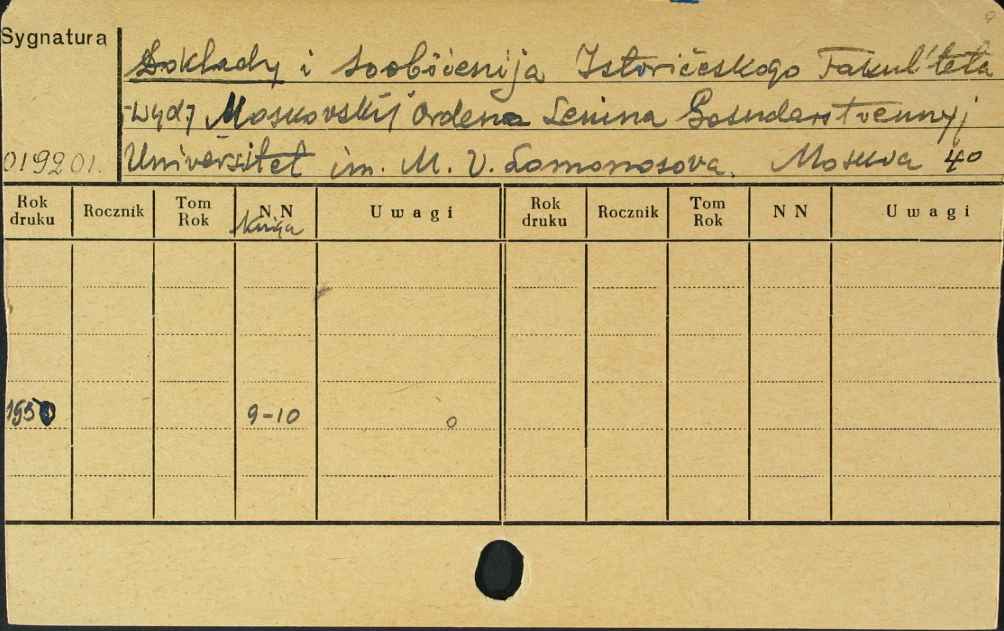 Sygnatura
Dokłady i soobščenija Istoričeskogo Fakul'teta
-Wyd7 Moskovskij Ordena Lenina Gosudarstvennyj
019201. Universitet im. M. V. Lomonosova. Moskva 40
Rok druku Rocznik Tom Rok N N Kniga U w a g i Rok druku Rocznik Tom Rok N N U w a g i
1950 9-10 o